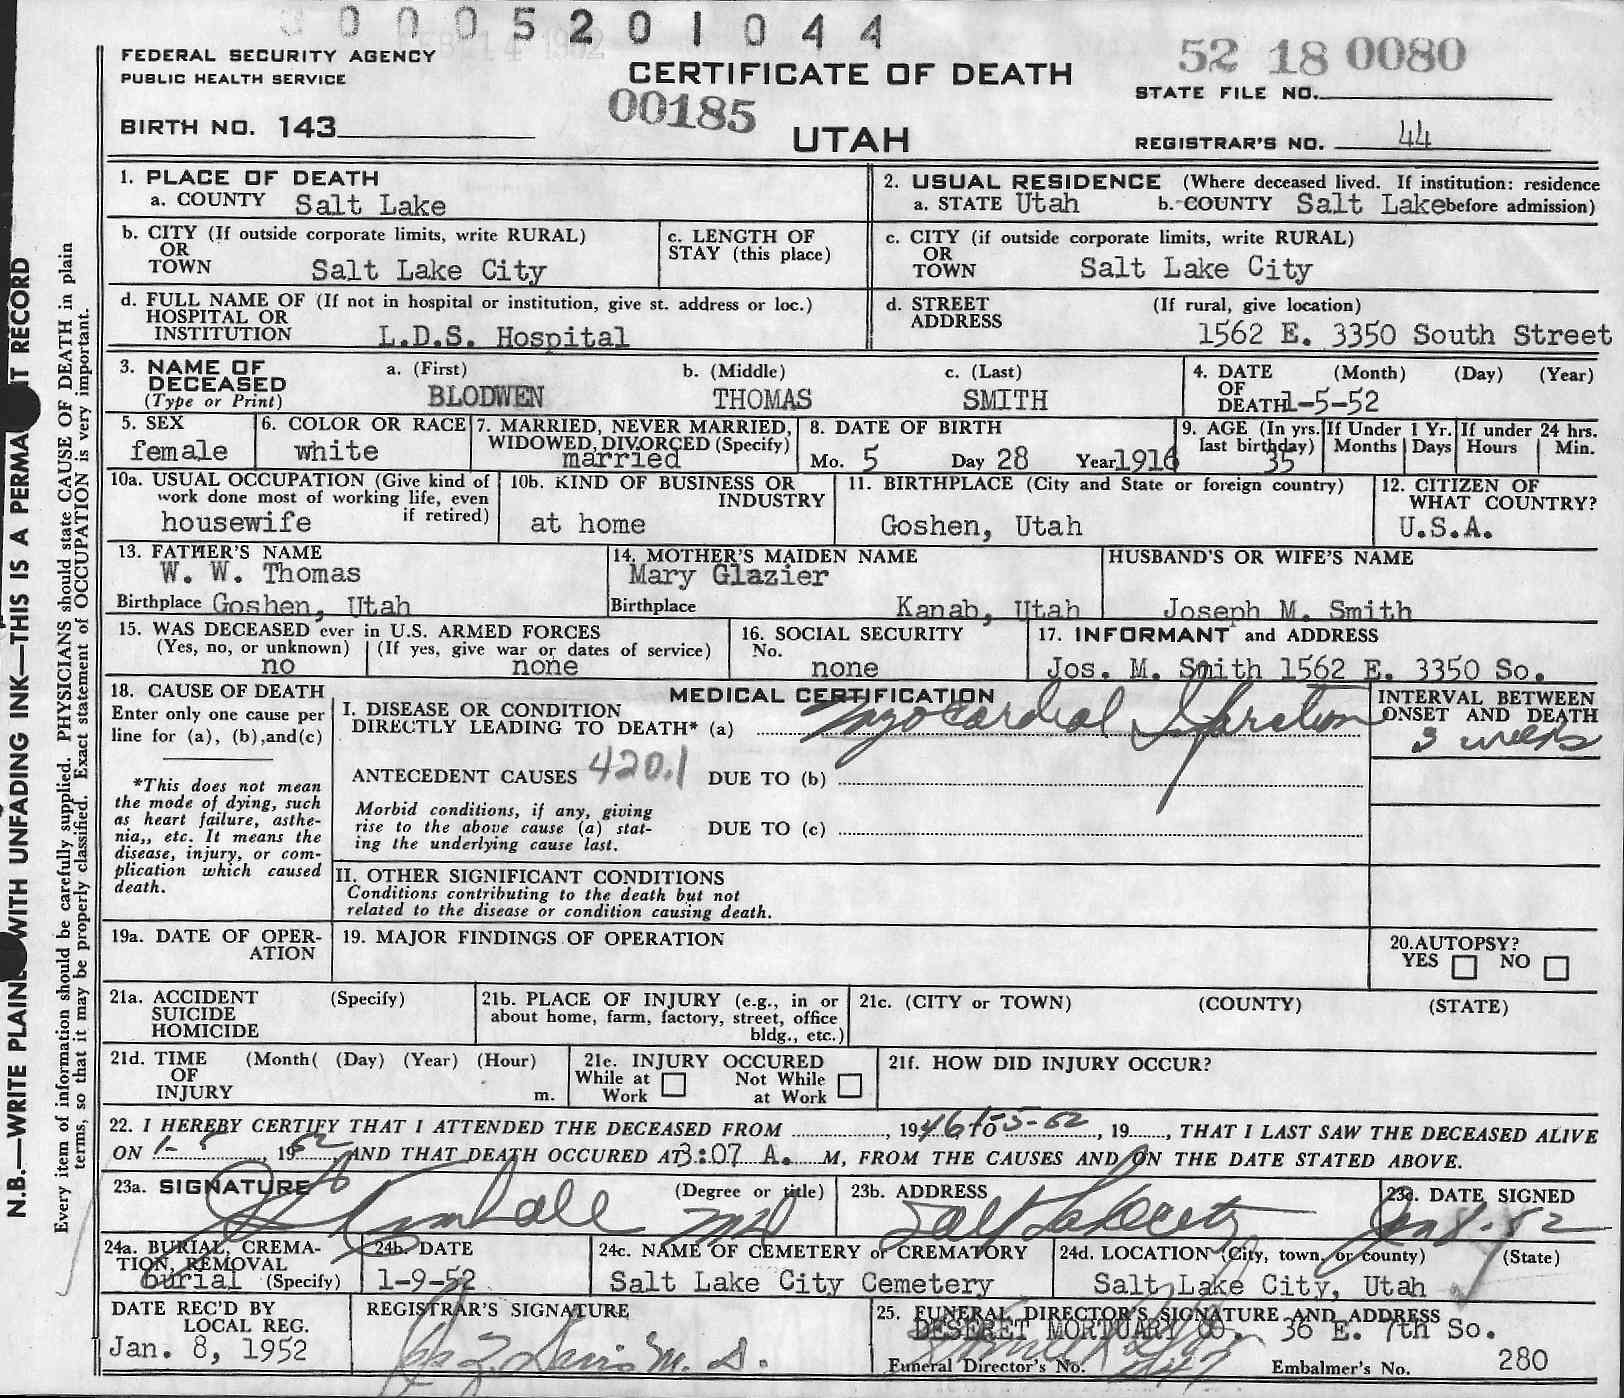 0005201044
FEDERAL SECURITY AGENCY
PUBLIC HEALTH SERVICE
CERTIFICATE OF DEATH
52 18 0080
STATE FILE NO.
00185
BIRTH NO. 143
UTAH
REGISTRAR'S NO. 44
1. PLACE OF DEATH
a. COUNTY Salt Lake
2. USUAL RESIDENCE (Where deceased lived. If institution: residence
a. STATE Utah b. COUNTY Salt Lake before admission)
b. CITY (If outside corporate limits, write RURAL)
OR
TOWN Salt Lake City
c. LENGTH OF
STAY (this place)
c. CITY (if outside corporate limits, write RURAL)
OR
TOWN Salt Lake City
d. FULL NAME OF (If not in hospital or institution, give st. address or loc.)
HOSPITAL OR
INSTITUTION L.D.S. Hospital
d. STREET (If rural, give location)
ADDRESS 1562 E. 3350 South Street
3. NAME OF
DECEASED
(Type or Print)
a. (First) b. (Middle) c. (Last)
BLODWEN THOMAS SMITH
4. DATE (Month) (Day) (Year)
OF
DEATH 1-5-52
5. SEX
female
6. COLOR OR RACE
white
7. MARRIED, NEVER MARRIED,
WIDOWED, DIVORCED (Specify)
married
8. DATE OF BIRTH
Mo. 5 Day 28 Year 1916
9. AGE (In yrs.
last birthday)
35
If Under 1 Yr.
Months Days
If under 24 hrs.
Hours Min.
10a. USUAL OCCUPATION (Give kind of
work done most of working life, even
if retired)
housewife
10b. KIND OF BUSINESS OR
INDUSTRY
at home
11. BIRTHPLACE (City and State or foreign country)
Goshen, Utah
12. CITIZEN OF
WHAT COUNTRY?
U.S.A.
13. FATHER'S NAME
W. W. Thomas
Birthplace Goshen, Utah
14. MOTHER'S MAIDEN NAME
Mary Glazier
Birthplace Kanab, Utah
HUSBAND'S OR WIFE'S NAME
Joseph M. Smith
15. WAS DECEASED ever in U.S. ARMED FORCES
(Yes, no, or unknown) (If yes, give war or dates of service)
no none
16. SOCIAL SECURITY
No.
none
17. INFORMANT and ADDRESS
Jos. M. Smith 1562 E. 3350 So.
18. CAUSE OF DEATH
Enter only one cause per
line for (a), (b),and(c)
*This does not mean
the mode of dying, such
as heart failure, asthe-
nia,, etc. It means the
disease, injury, or com-
plication which caused
death.
MEDICAL CERTIFICATION
I. DISEASE OR CONDITION
DIRECTLY LEADING TO DEATH* (a) Myocardial Infarction
INTERVAL BETWEEN
ONSET AND DEATH
3 weeks
ANTECEDENT CAUSES 420.1 DUE TO (b)
Morbid conditions, if any, giving
rise to the above cause (a) stat-
ing the underlying cause last.
DUE TO (c)
II. OTHER SIGNIFICANT CONDITIONS
Conditions contributing to the death but not
related to the disease or condition causing death.
19a. DATE OF OPER-
ATION
19. MAJOR FINDINGS OF OPERATION
20. AUTOPSY?
YES NO
21a. ACCIDENT (Specify)
SUICIDE
HOMICIDE
21b. PLACE OF INJURY (e.g., in or
about home, farm, factory, street, office
bldg., etc.)
21c. (CITY or TOWN) (COUNTY) (STATE)
21d. TIME (Month( (Day) (Year) (Hour)
OF
INJURY m.
21e. INJURY OCCURED
While at Not While
Work at Work
21f. HOW DID INJURY OCCUR?
22. I HEREBY CERTIFY THAT I ATTENDED THE DECEASED FROM , 1946 TO 1-5-52, 19 , THAT I LAST SAW THE DECEASED ALIVE
ON 1-5 , 1952, AND THAT DEATH OCCURED AT 3:07 A. M, FROM THE CAUSES AND ON THE DATE STATED ABOVE.
23a. SIGNATURE Kimball (Degree or title) MD
23b. ADDRESS
Salt Lake City
23c. DATE SIGNED
Jan 8-52
24a. BURIAL, CREMA-
TION, REMOVAL
burial (Specify)
24b. DATE
1-9-52
24c. NAME OF CEMETERY or CREMATORY
Salt Lake City Cemetery
24d. LOCATION (City, town, or county) (State)
Salt Lake City, Utah
DATE REC'D BY
LOCAL REG.
Jan. 8, 1952
REGISTRAR'S SIGNATURE
Davis M. D.
25. FUNERAL DIRECTOR'S SIGNATURE AND ADDRESS
DESERET MORTUARY CO. 36 E. 7th So.
Funeral Director's No. Embalmer's No. 280
N.B.—WRITE PLAINL WITH UNFADING INK—THIS IS A PERMA T RECORD
Every item of information should be carefully supplied. PHYSICIANS should state CAUSE OF DEATH in plain
terms, so that it may be properly classified. Exact statement of OCCUPATION is very important.